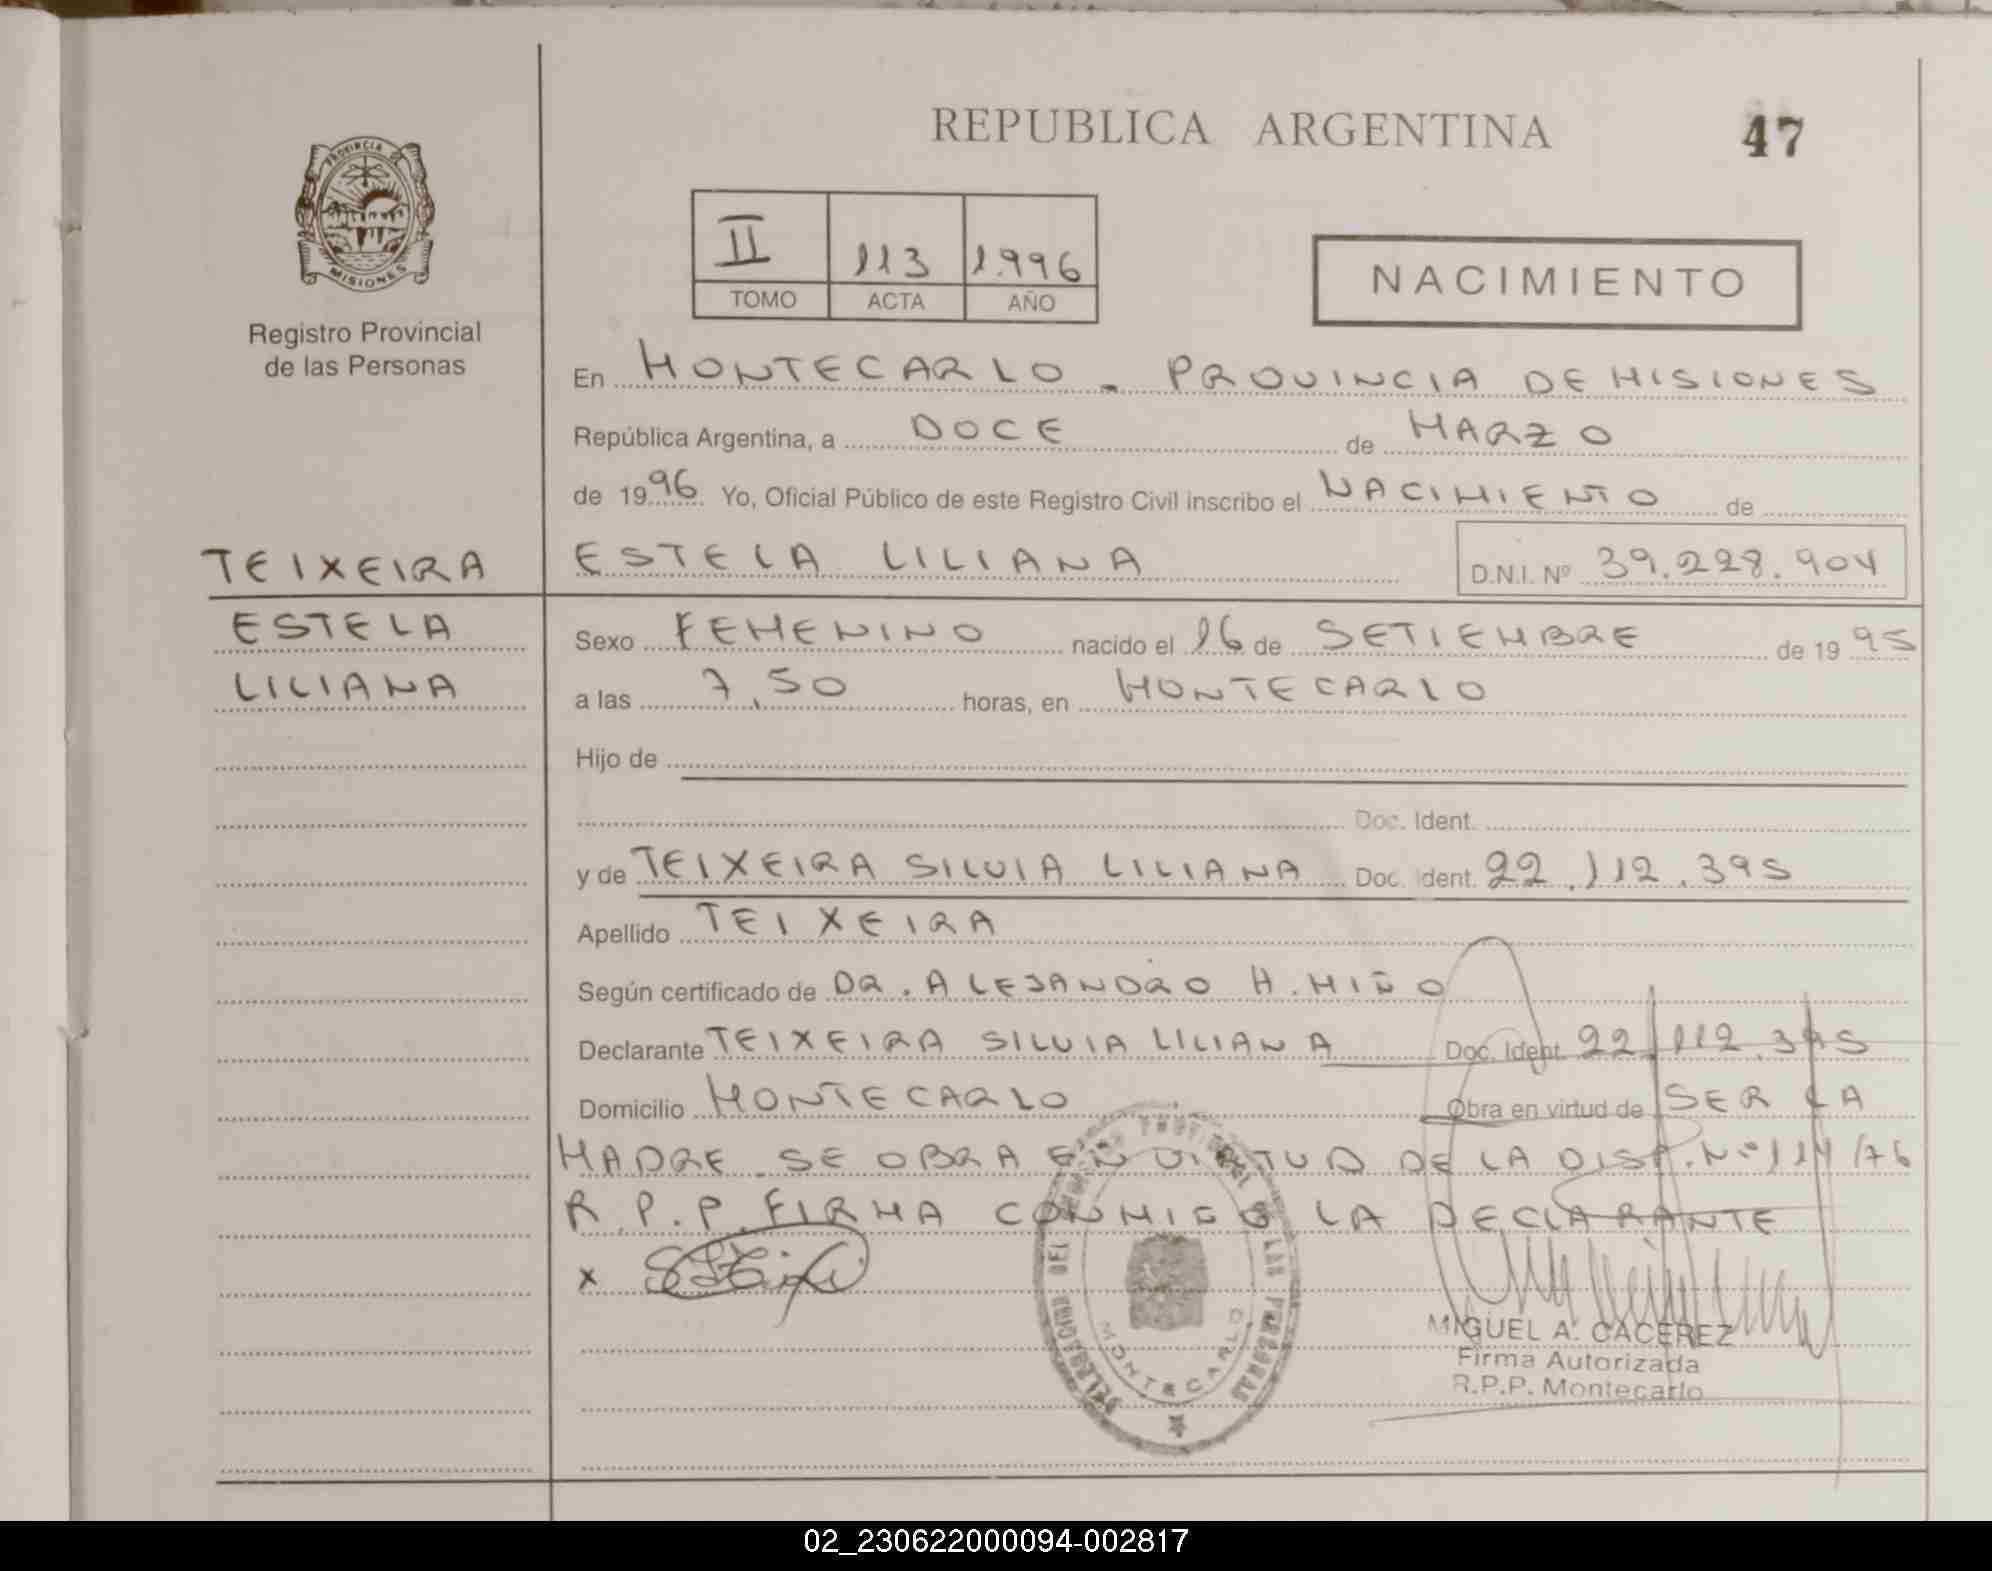 REPUBLICA ARGENTINA
47
PROVINCIA DE
MISIONES
Registro Provincial
de las Personas
II 113 1.996
TOMO ACTA AÑO
NACIMIENTO
En MONTECARLO - PROVINCIA DE MISIONES
República Argentina, a DOCE de MARZO
de 1996 Yo, Oficial Público de este Registro Civil inscribo el NACIMIENTO de
TEIXEIRA
ESTELA LILIANA D.N.I. Nº 39.228.904
ESTELA
LILIANA
Sexo FEMENINO nacido el 16 de SETIEMBRE de 1995
a las 7,50 horas, en MONTECARLO
Hijo de
Doc. Ident.
y de TEIXEIRA SILVIA LILIANA Doc. Ident. 22.112.395
Apellido TEIXEIRA
Según certificado de DR. ALEJANDRO H. MIÑO
Declarante TEIXEIRA SILVIA LILIANA Doc. Ident. 22.112.395
Domicilio MONTECARLO Obra en virtud de SER LA
MADRE. SE OBRA EN VIRTUD DE LA DISP. Nº 114/76
R.P.P. FIRMA CONMIGO LA DECLARANTE
x
DELEGACION DEL REGISTRO PROVINCIAL DE LAS PERSONAS
MONTECARLO
MIGUEL A. CACEREZ
Firma Autorizada
R.P.P. Montecarlo
02_230622000094-002817